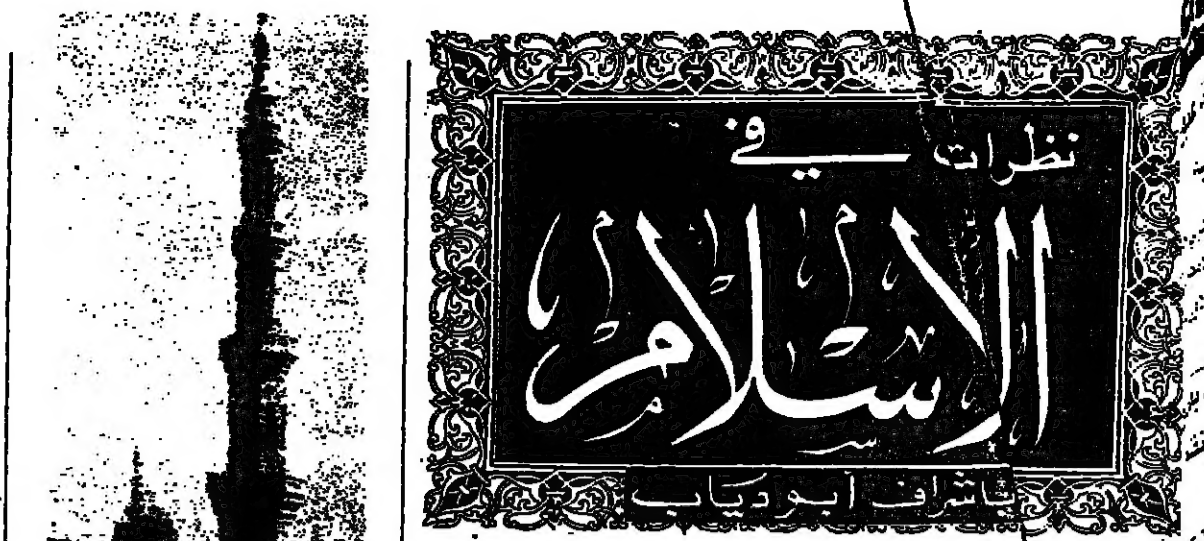 نظرات في
الاسلام
باشراف أبو دياب